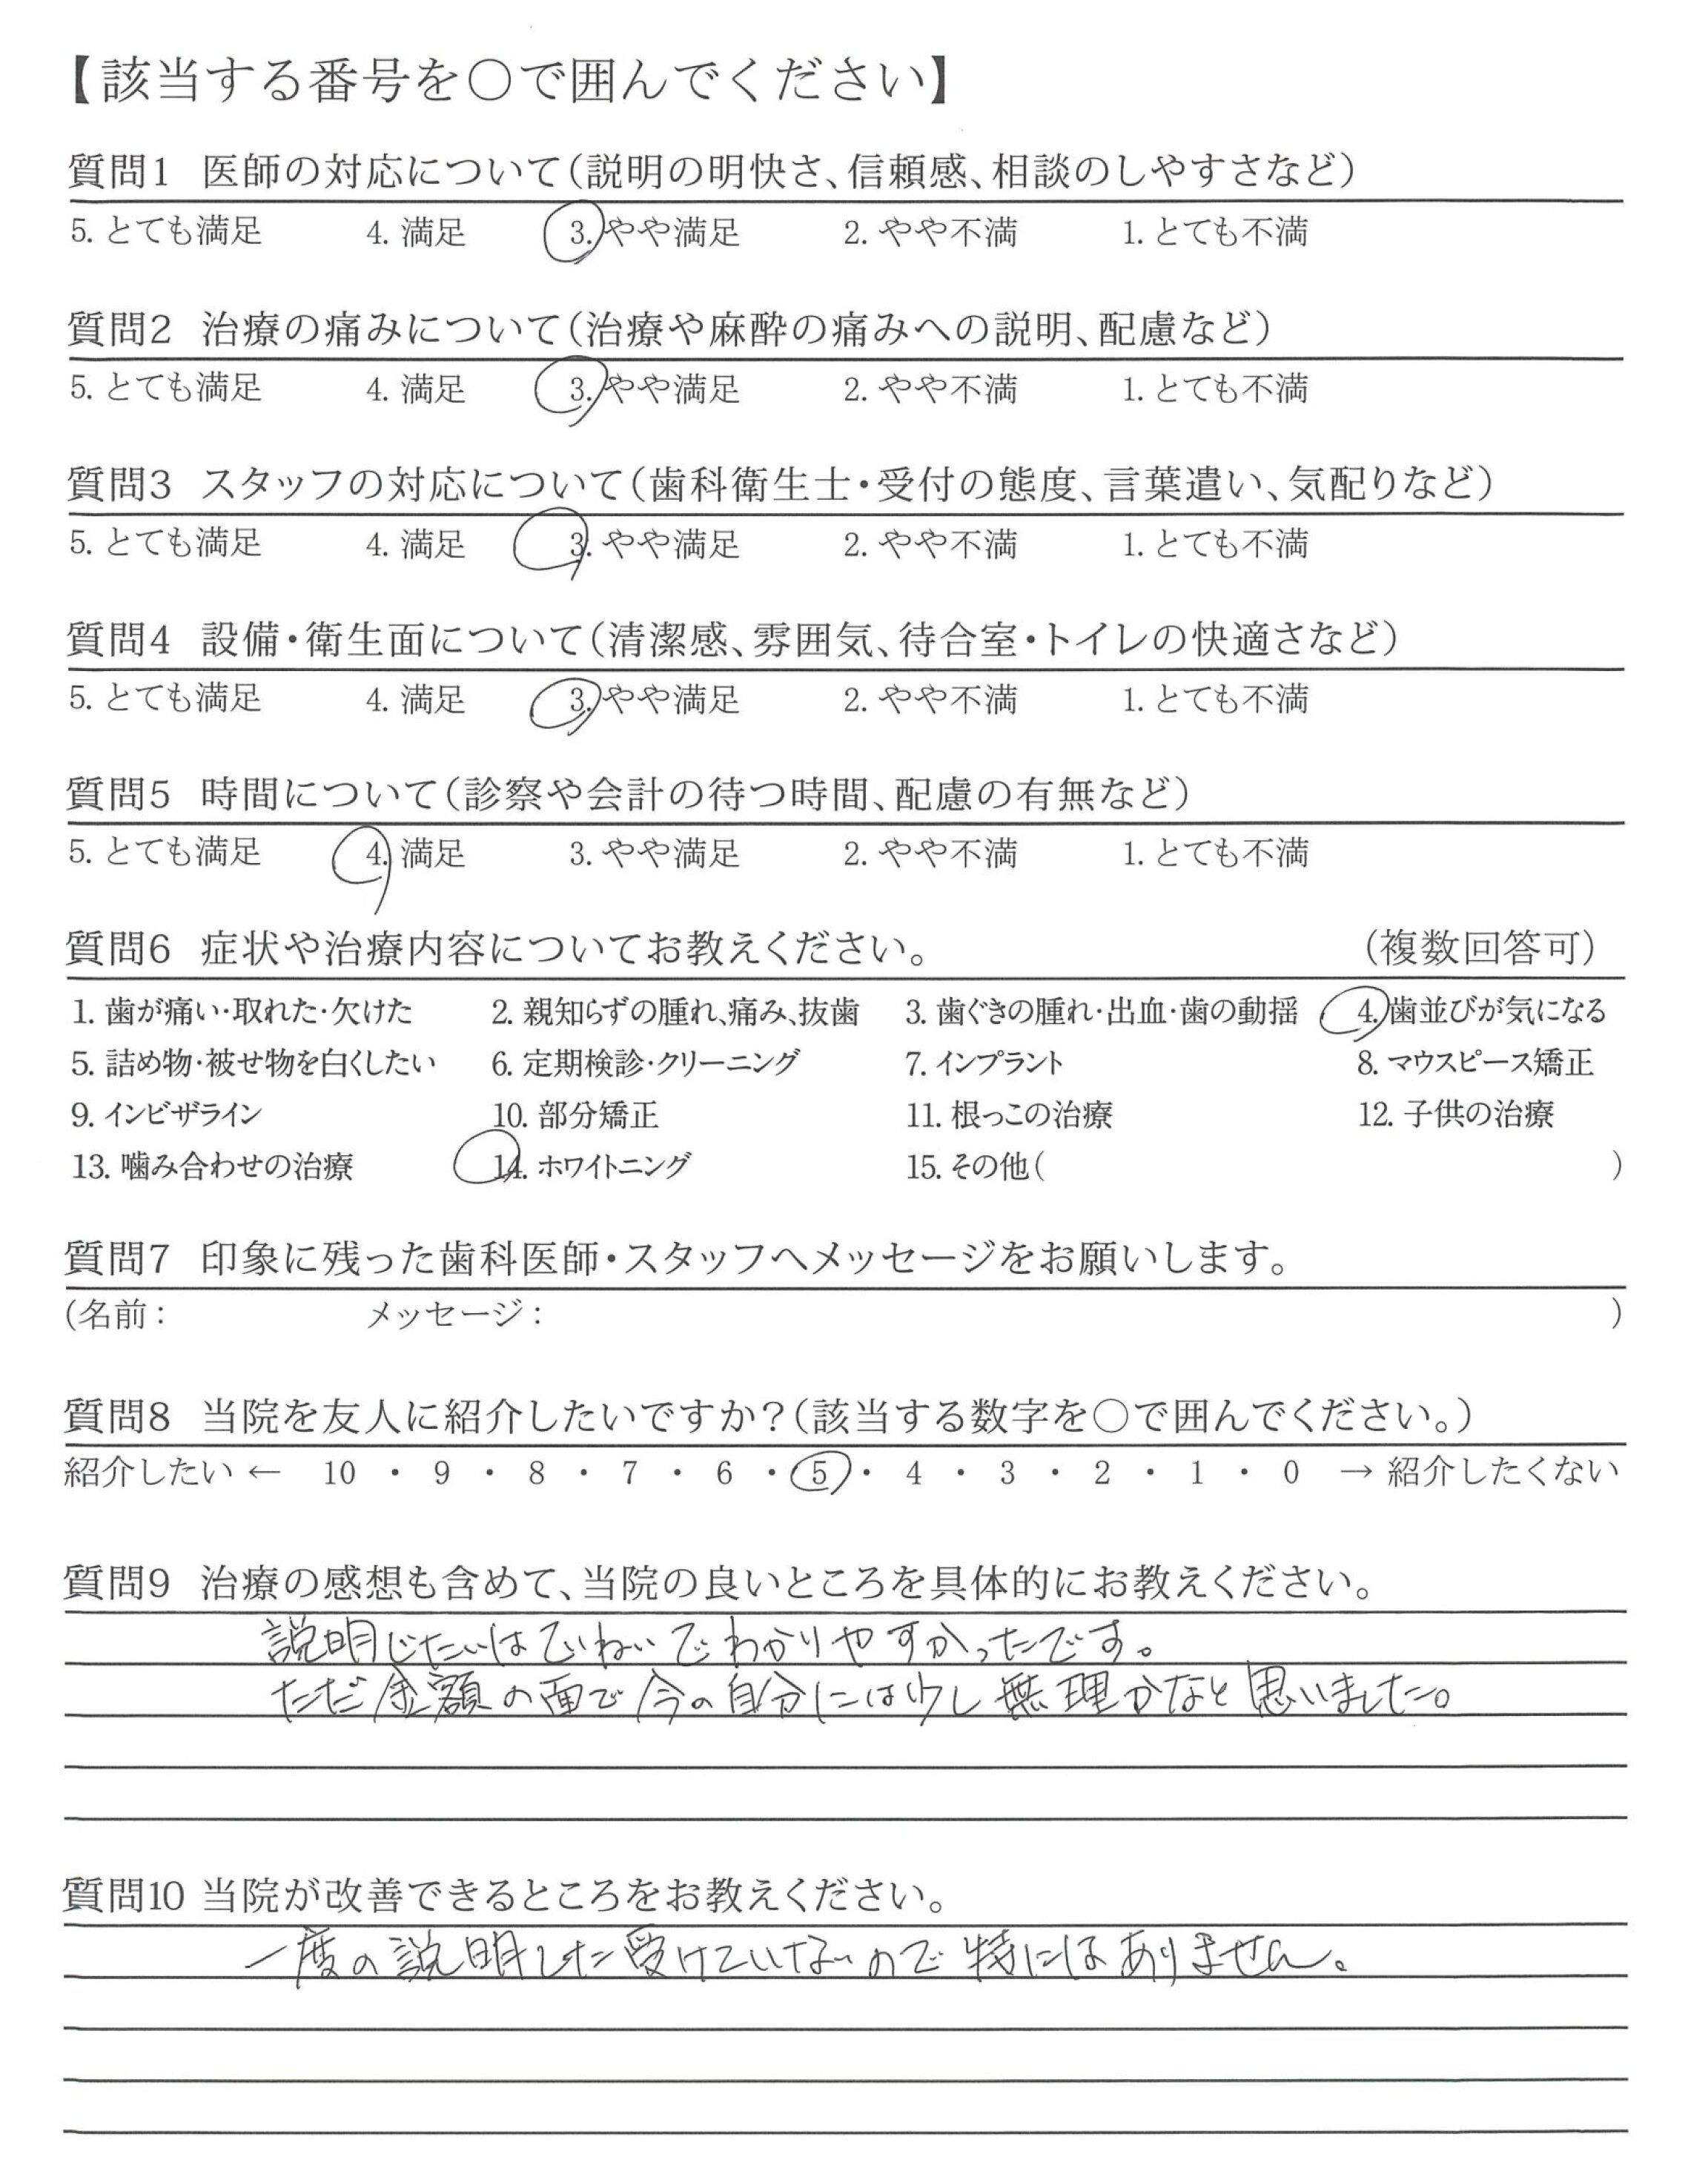 【該当する番号を○で囲んでください】
質問1 医師の対応について(説明の明快さ、信頼感、相談のしやすさなど)
5. とても満足 4. 満足 3. やや満足 2. やや不満 1. とても不満
質問2 治療の痛みについて(治療や麻酔の痛みへの説明、配慮など)
5. とても満足 4. 満足 3. やや満足 2. やや不満 1. とても不満
質問3 スタッフの対応について(歯科衛生士・受付の態度、言葉遣い、気配りなど)
5. とても満足 4. 満足 3. やや満足 2. やや不満 1. とても不満
質問4 設備・衛生面について(清潔感、雰囲気、待合室・トイレの快適さなど)
5. とても満足 4. 満足 3. やや満足 2. やや不満 1. とても不満
質問5 時間について(診察や会計の待つ時間、配慮の有無など)
5. とても満足 4. 満足 3. やや満足 2. やや不満 1. とても不満
質問6 症状や治療内容についてお教えください。 (複数回答可)
1. 歯が痛い・取れた・欠けた 2. 親知らずの腫れ、痛み、抜歯 3. 歯ぐきの腫れ・出血・歯の動揺 4. 歯並びが気になる
5. 詰め物・被せ物を白くしたい 6. 定期検診・クリーニング 7. インプラント 8. マウスピース矯正
9. インビザライン 10. 部分矯正 11. 根っこの治療 12. 子供の治療
13. 噛み合わせの治療 14. ホワイトニング 15. その他( )
質問7 印象に残った歯科医師・スタッフへメッセージをお願いします。
(名前: メッセージ: )
質問8 当院を友人に紹介したいですか?(該当する数字を○で囲んでください。)
紹介したい ← 10 ・ 9 ・ 8 ・ 7 ・ 6 ・ 5 ・ 4 ・ 3 ・ 2 ・ 1 ・ 0 → 紹介したくない
質問9 治療の感想も含めて、当院の良いところを具体的にお教えください。
説明じたいはていねいでわかりやすかったです。
ただ金額の面で今の自分には少し無理かなと思いました。
質問10 当院が改善できるところをお教えください。
一度の説明しか受けていないので特にはありません。